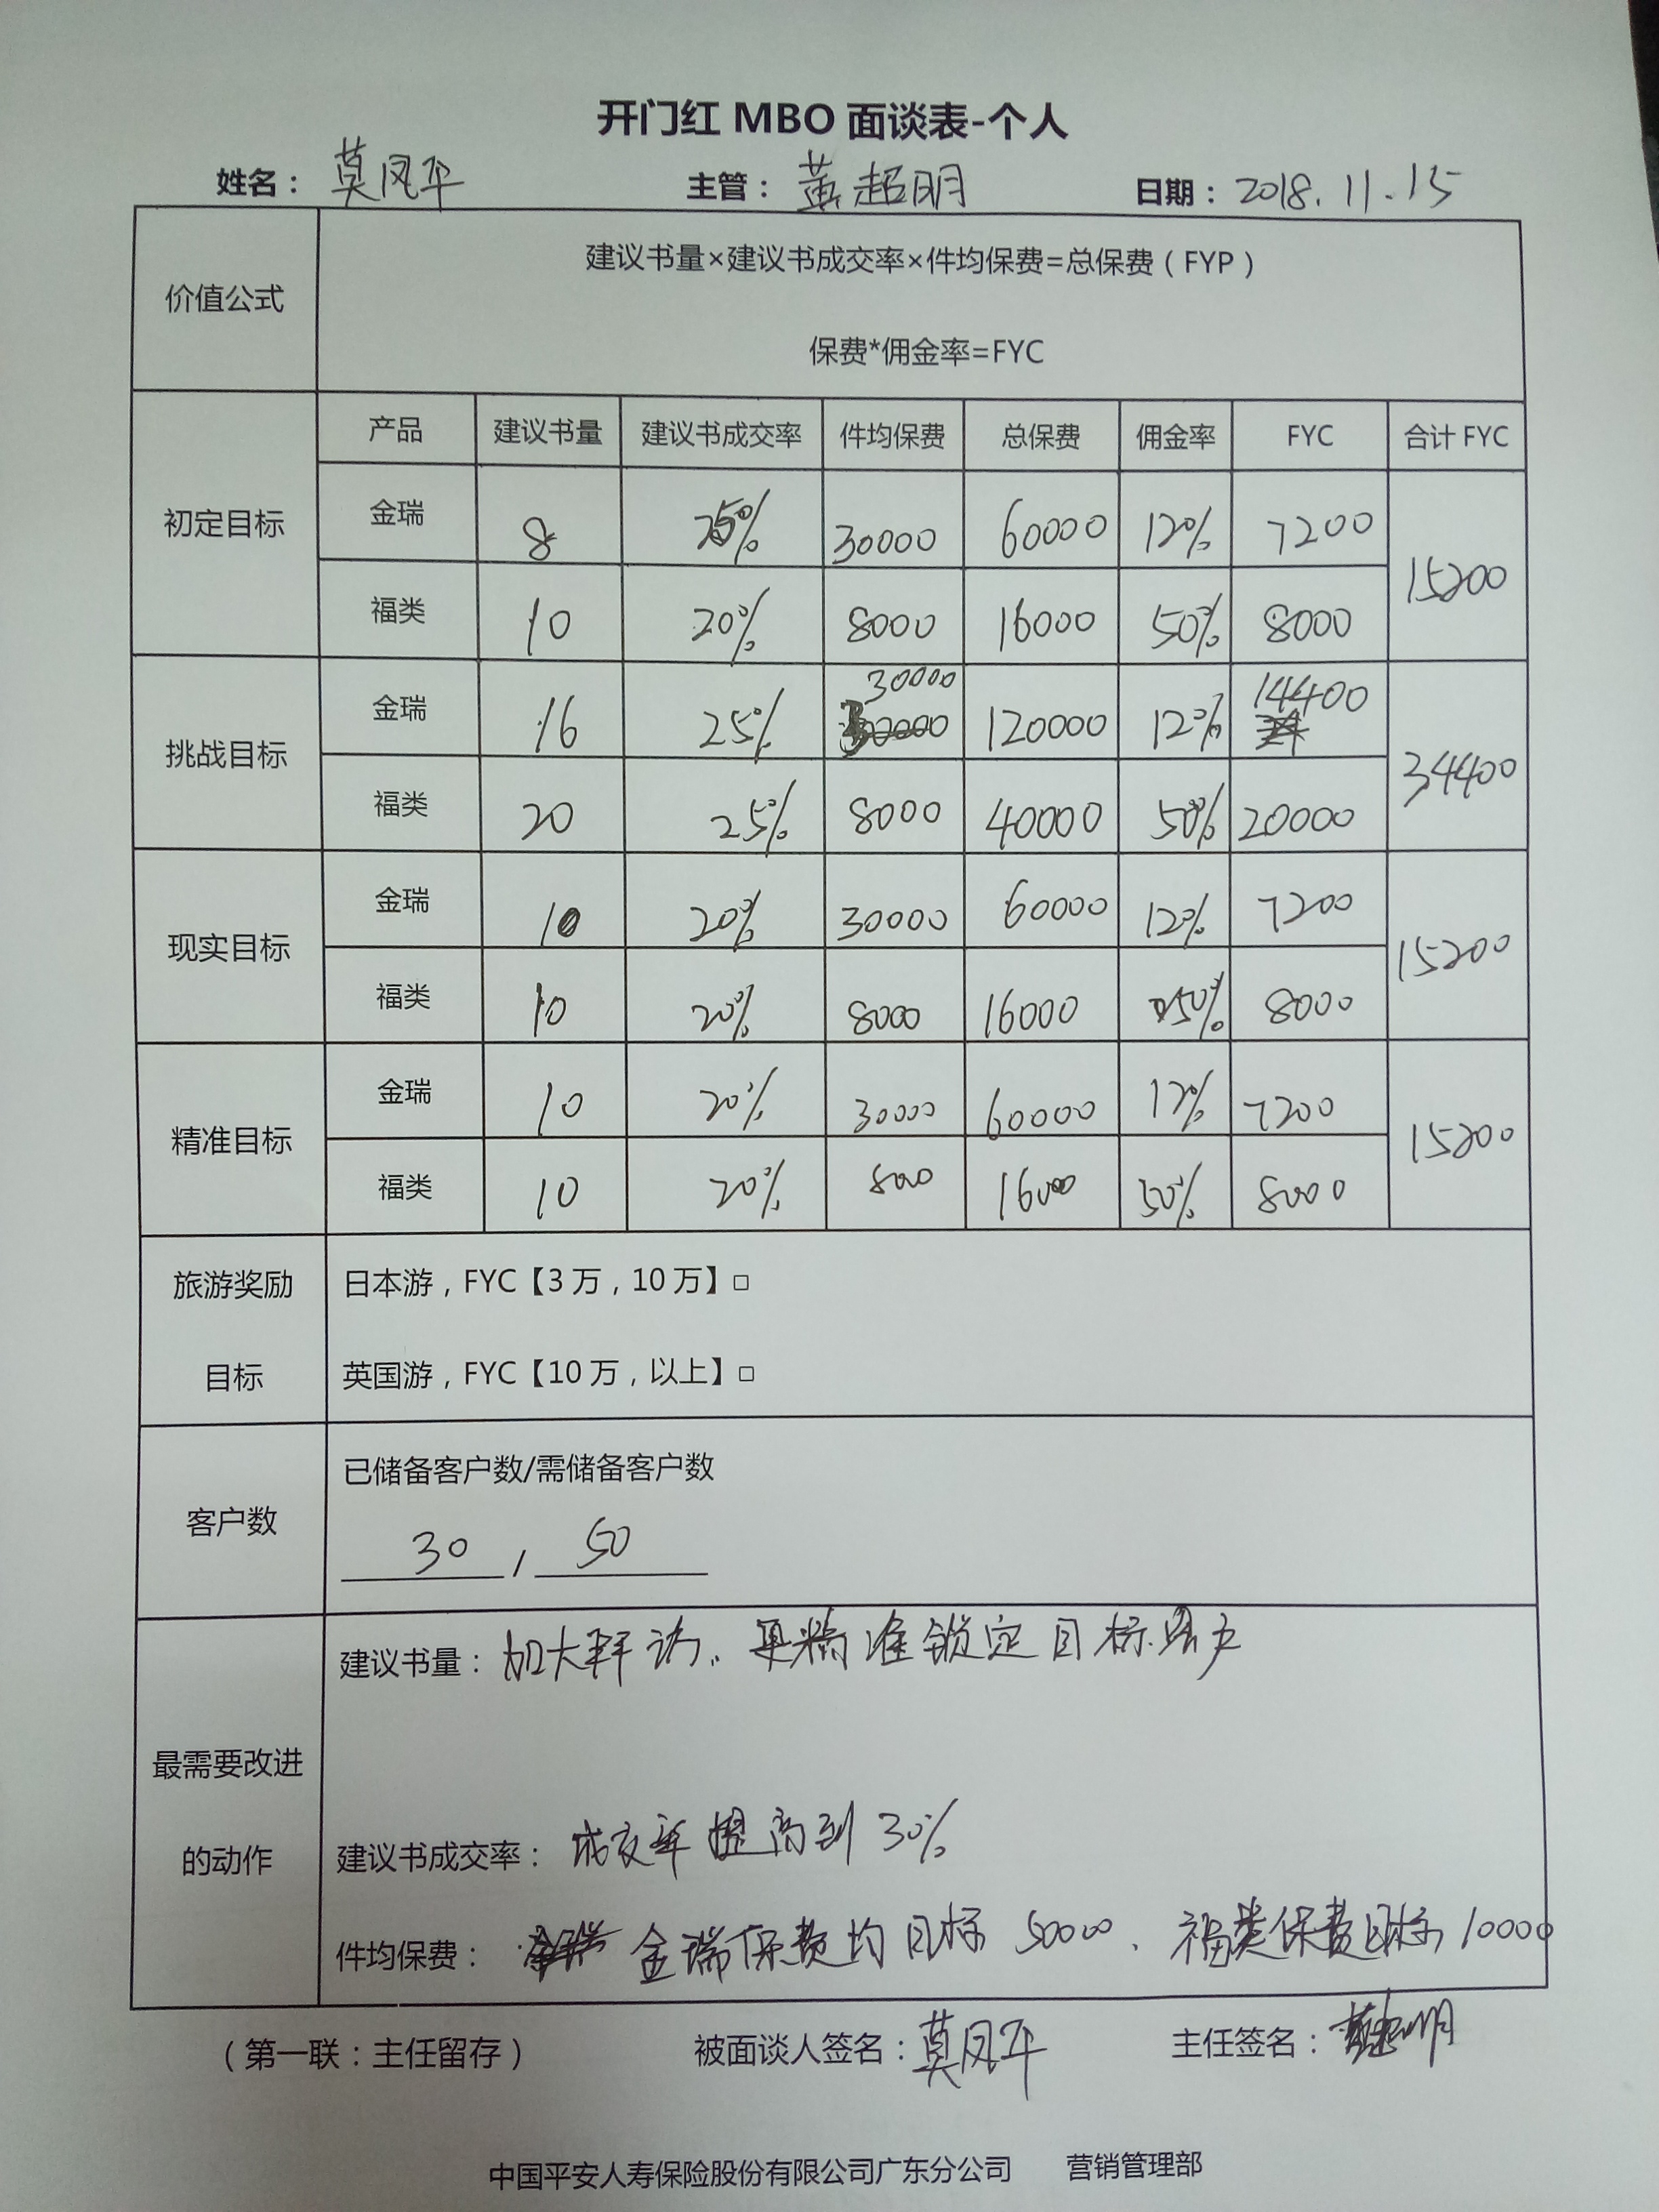 开门红 MBO 面谈表-个人
姓名： 莫凤平 主管： 黄超明 日期： 2018.11.15
价值公式
建议书量×建议书成交率×件均保费=总保费（FYP）
保费*佣金率=FYC
初定目标
产品 建议书量 建议书成交率 件均保费 总保费 佣金率 FYC 合计 FYC
金瑞 8 25% 30000 60000 12% 7200
15200
福类 10 20% 8000 16000 50% 8000
挑战目标
金瑞 16 25% 30000 120000 12% 14400
34400
福类 20 25% 8000 40000 50% 20000
现实目标
金瑞 10 20% 30000 60000 12% 7200
15200
福类 10 20% 8000 16000 50% 8000
精准目标
金瑞 10 20% 30000 60000 12% 7200
15200
福类 10 20% 8000 16000 50% 8000
旅游奖励
目标
日本游，FYC【3 万，10 万】□
英国游，FYC【10 万，以上】□
客户数
已储备客户数/需储备客户数
30 / 50
最需要改进
的动作
建议书量：加大拜访。更精准锁定目标客户
建议书成交率：成交率提高到30%
件均保费：金瑞保费均目标 50000、福类保费目标10000
（第一联：主任留存） 被面谈人签名：莫凤平 主任签名：黄超明
中国平安人寿保险股份有限公司广东分公司 营销管理部